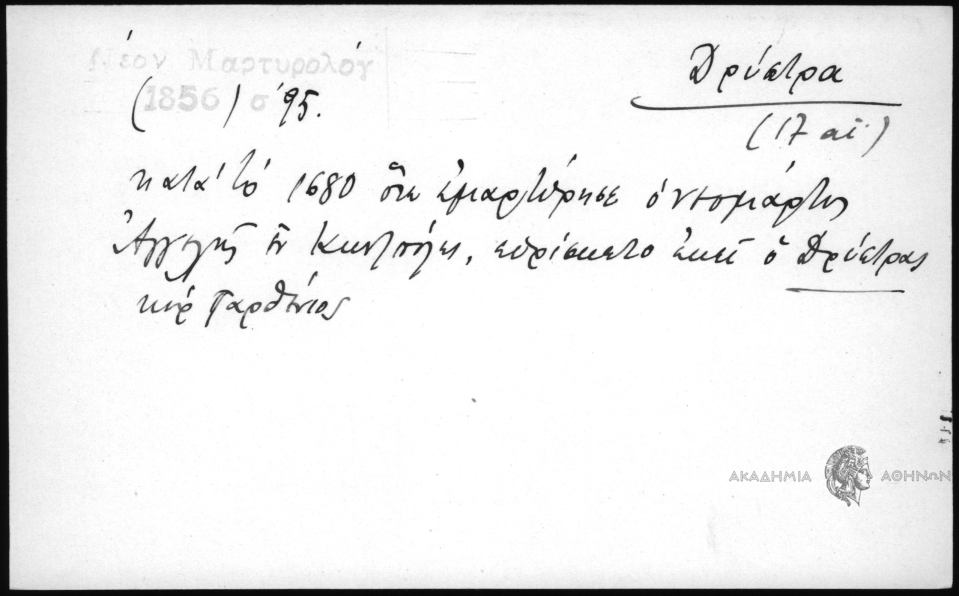 Νέον Μαρτυρολόγ
(1856) σ 95.
Δρύστρα
(17 αἰ.)
κατὰ τὸ 1680 ὅτε ἐμαρτύρησε ὁ νεομάρτυς
Ἀγγελῆς ἐν Κωνπόλει, εὑρίσκετο ἐκεῖ ὁ Δρύστρας
κὺρ Παρθένιος
ΑΚΑΔΗΜΙΑ ΑΘΗΝΩΝ